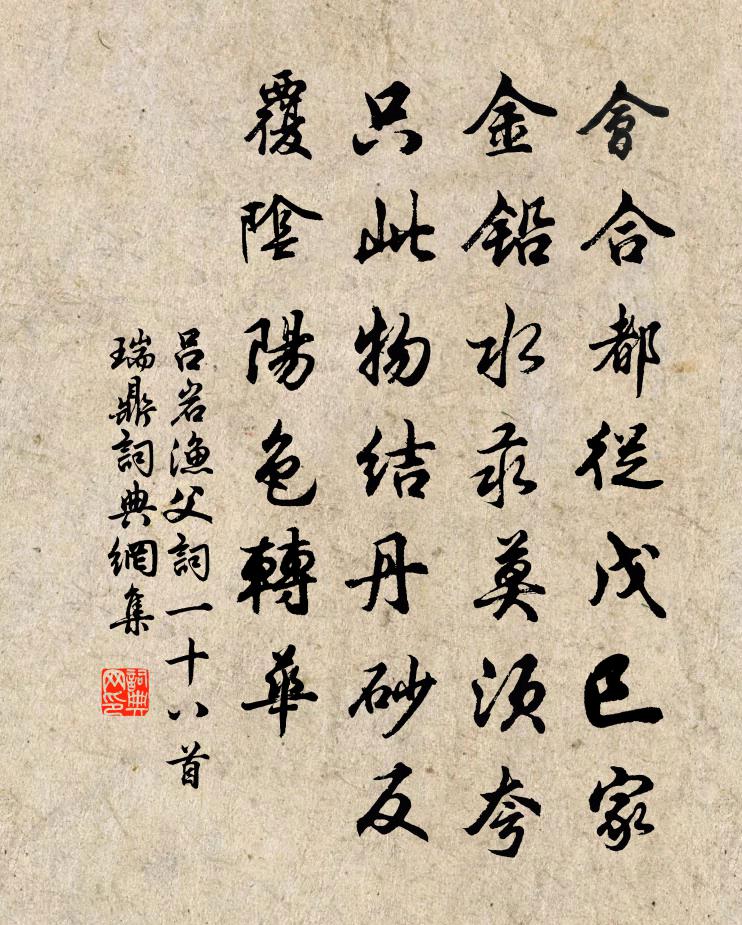 會合都從戊巳家
金鉛水汞莫須夸
只此物結丹砂反
覆陰陽色轉華
呂岩漁父詞一十八首
瑞鼎詞典網集
詞典网印